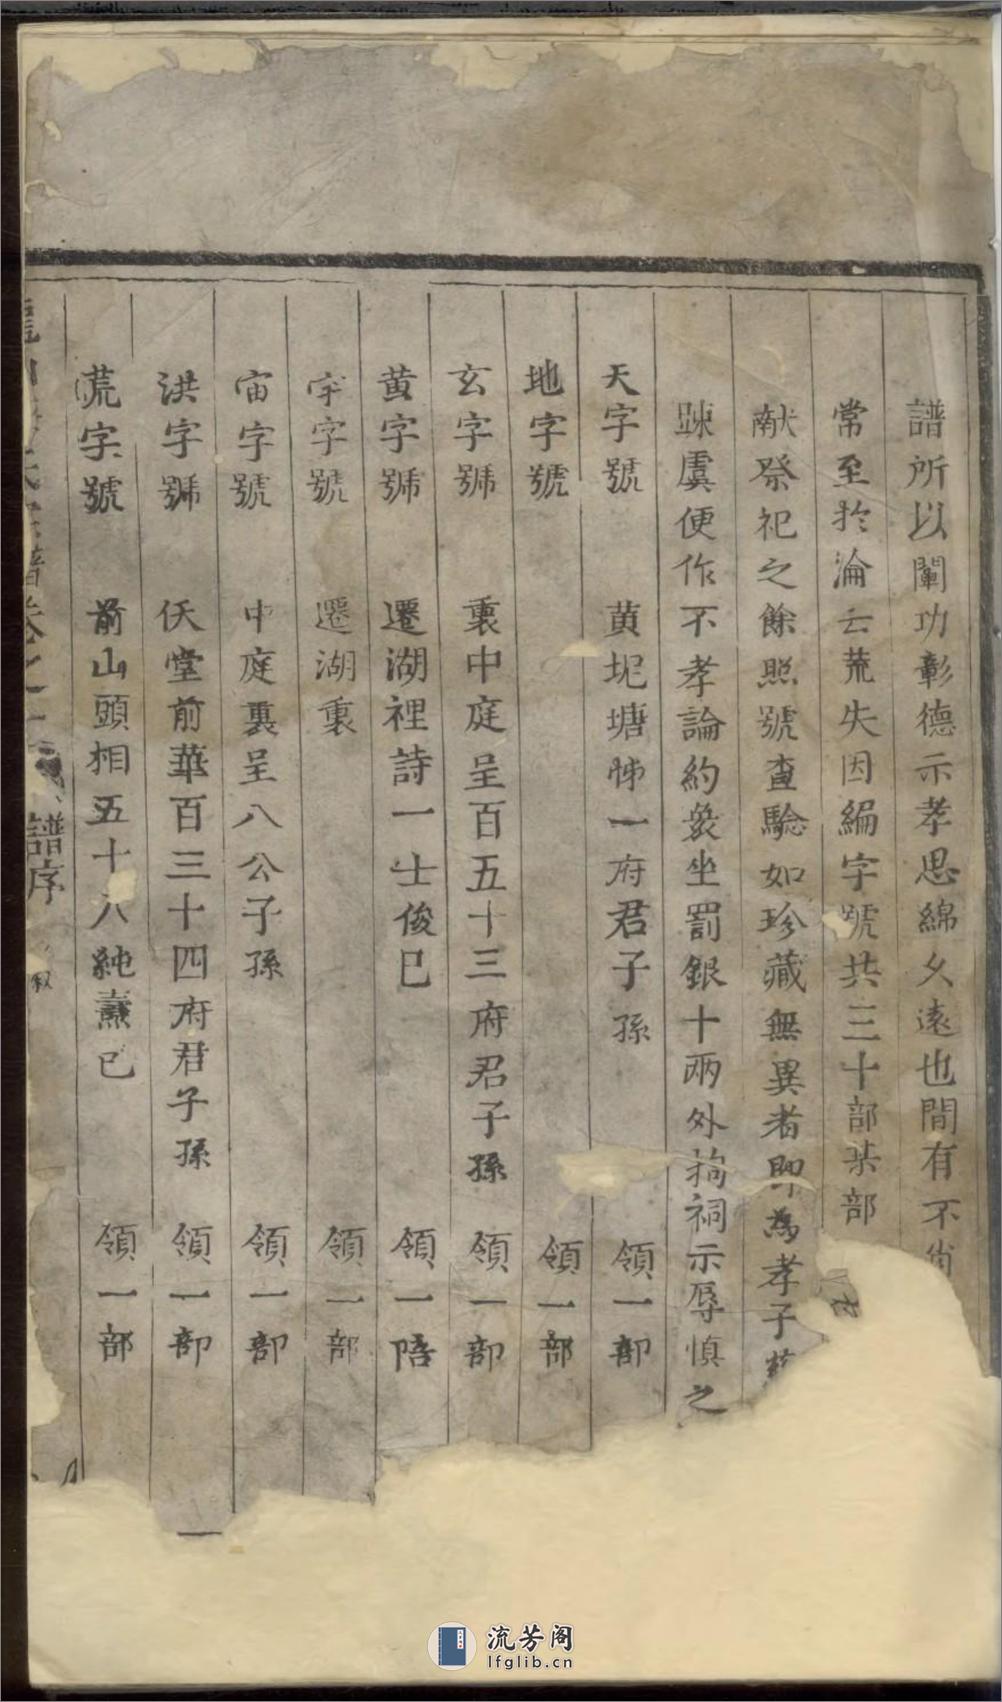 譜所以闡功彰德示孝思綿乆遠也間有不肖
常至於淪亡荒失因編字號共三十部某部
献祭祀之餘照號查驗如珍藏無異者即為孝子慈
踈虞便作不孝論約衆坐罰銀十兩外拘祠示辱慎之
天字號 黄坭塘悌一府君子孫 領一部
地字號 領一部
玄字號 裏中庭呈百五十三府君子孫 領一部
黄字號 遷湖裡詩一士俊已 領一部
宇字號 遷湖裏 領一部
宙字號 中庭裏呈八公子孫 領一部
洪字號 仸堂前華百三十四府君子孫 領一部
荒字號 前山頭相五十八純燾已 領一部
氏宗譜卷之一 譜序
流芳阁
lfglib.cn